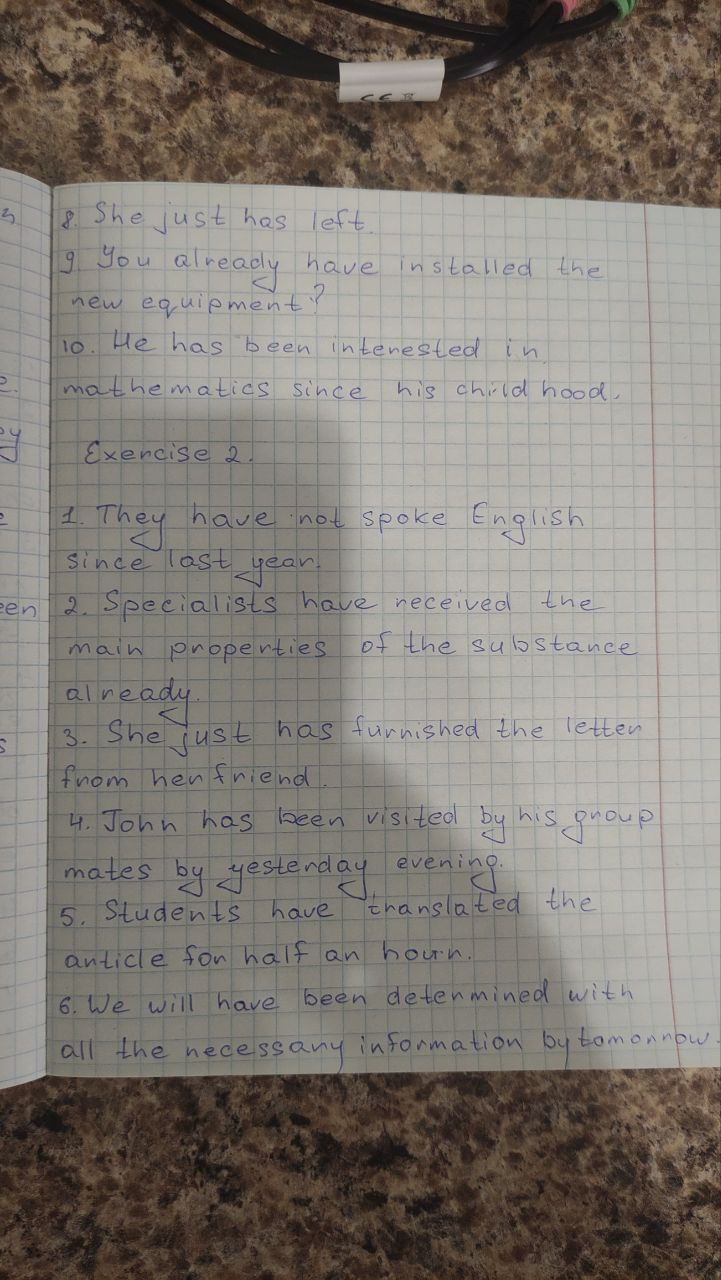 8. She just has left.
9 You already have installed the
new equipment?
10. He has been interested in
mathematics since his childhood.
Exercise 2.
1. They have not spoke English
since last year.
2. Specialists have received the
main properties of the substance
already.
3. She just has furnished the letter
from her friend.
4. John has been visited by his group
mates by yesterday evening.
5. Students have translated the
article for half an hour.
6. We will have been determined with
all the necessary information by tomorrow.